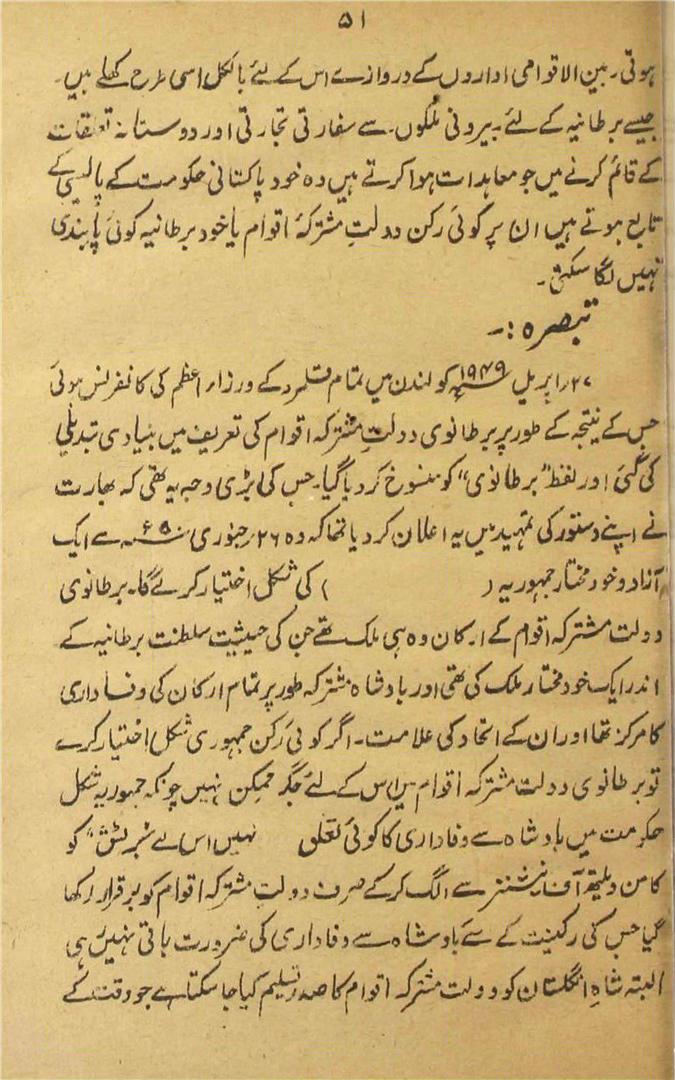 ۵۱
ہوتی۔ بین الاقوامی اداروں کے دروازے اس کے لئے بالکل اسی طرح کھلے ہیں۔
جیسے برطانیہ کے لئے۔ بیرونی ملکوں سے سفارتی تجارتی اور دوستانہ تعلقات
کے قائم کرنے میں جو معاہدات ہوا کرتے ہیں وہ خود پاکستانی حکومت کے پالیسی کے
تابع ہوتے ہیں ان پر کوئی رکن دولتِ مشترکۂ اقوام یا خود برطانیہ کوئی پابندی
نہیں لگا سکتی۔
تبصرہ:۔
۲۷؍اپریل ۱۹۴۹ء کو لندن میں تمام قلمرد کے وزراء اعظم کی کانفرنس ہوئی
جس کے نتیجہ کے طور پر برطانوی دولتِ مشترکہ اقوام کی تعریف میں بنیادی تبدیلی
کی گئی اور لفظ "برطانوی" کو منسوخ کر دیا گیا۔ جس کی بڑی وجہ یہ تھی کہ بھارت
نے اپنے دستور کی تمہید میں یہ اعلان کر دیا تھا کہ وہ ۲۶؍جنوری ۵۰ء سے ایک
آزاد و خود مختار جمہوریہ ( ) کی شکل اختیار کرے گا۔ برطانوی
دولت مشترکہ اقوام کے ارکان وہ ہی ملک تھے جن کی حیثیت سلطنت برطانیہ کے
اندر ایک خود مختار ملک کی تھی اور بادشاہ مشترکہ طور پر تمام ارکان کی وفاداری
کا مرکز تھا اور ان کے اتحاد کی علامت۔ اگر کوئی رکن جمہوری شکل اختیار کرے
تو برطانوی دولت مشترکہ اقوام میں اس کے لئے جگہ ممکن نہیں چونکہ جمہوریہ شکل
حکومت میں بادشاہ سے وفاداری کا کوئی تعلق نہیں اس لے "برٹش" کو
کامن ویلتھ آف نیشننز سے الگ کر کے صرف دولتِ مشترکہ اقوام کو برقرار رکھا
گیا جس کی رکنیت کے لئے بادشاہ سے وفاداری کی ضرورت باقی نہیں رہی
البتہ شاہِ انگلستان کو دولت مشترکہ اقوام کا صدر تسلیم کیا جا سکتا ہے جو وقت کے